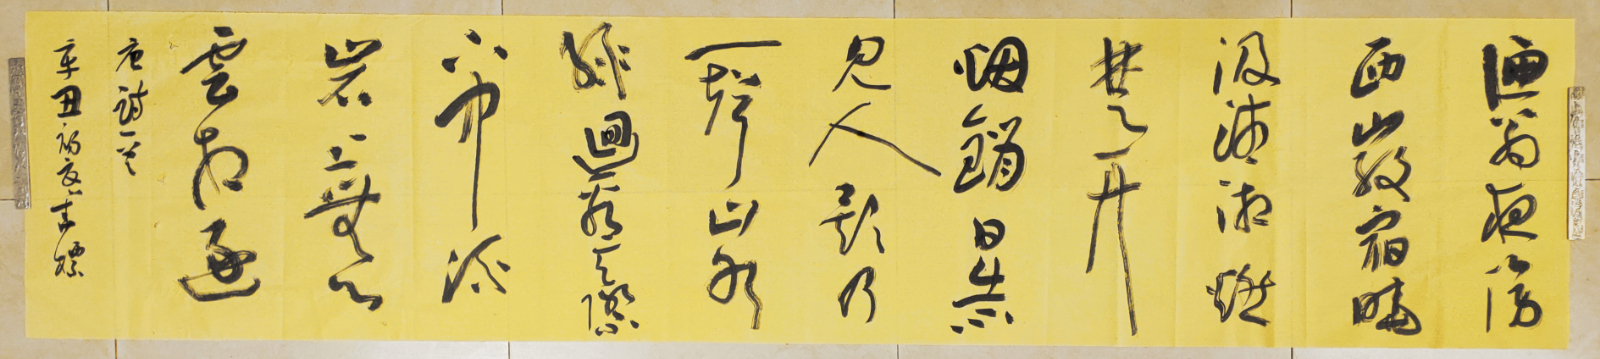 漁翁夜傍
西巖宿曉
汲清湘燃
楚竹
烟銷日出不
見人欸乃
一聲山水
綠迴看天際
下中流
岩上無心
雲相逐
唐詩一首
辛丑初夏